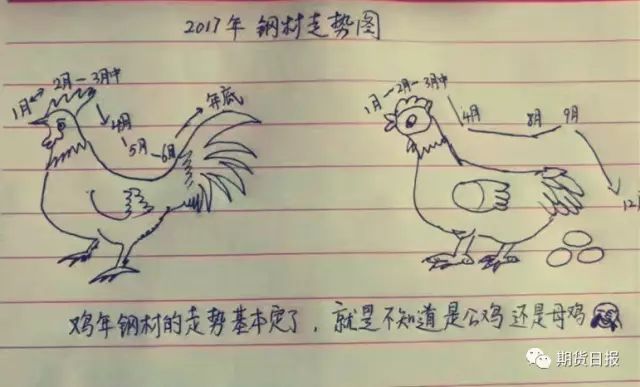 2017年 钢材走势图
1月 2月-3月中
4月
5月-6月
年底
1月-2月-3月中
4月
8月 9月
12月
鸡年钢材的走势基本定了，就是不知道是公鸡还是母鸡
期货日报